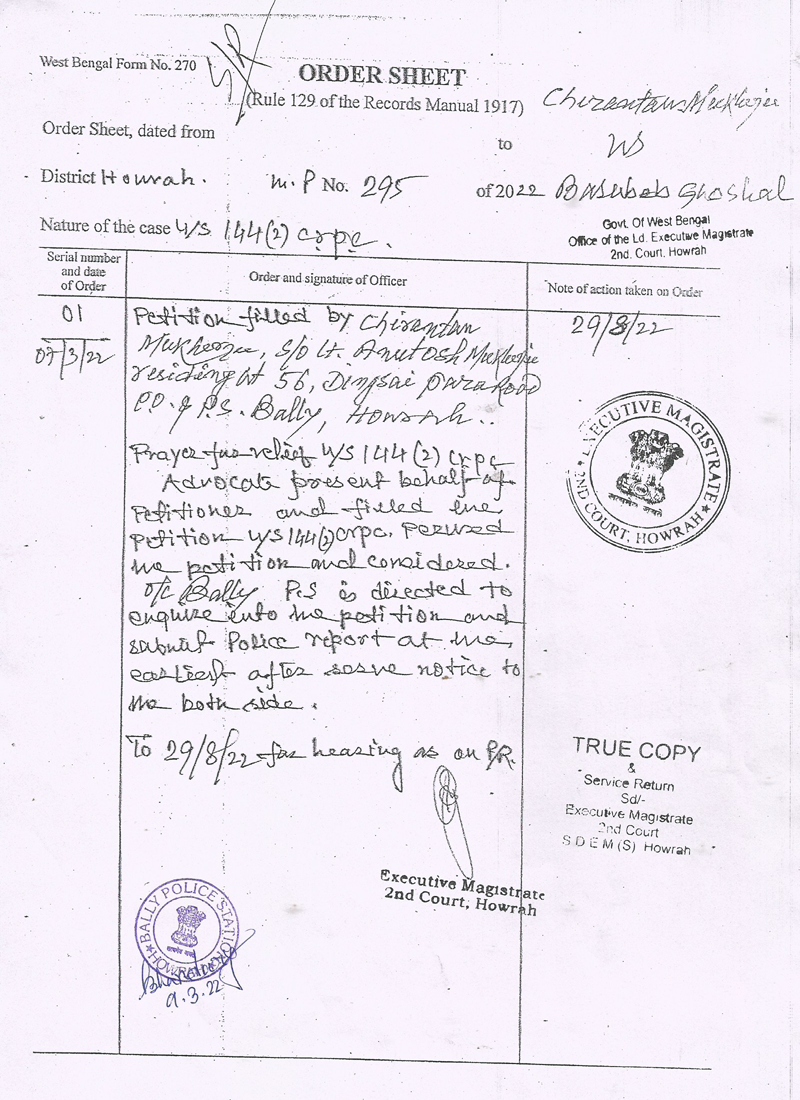 West Bengal Form No. 270
ORDER SHEET
(Rule 129 of the Records Manual 1917)
Chirantan Mukherjee
Order Sheet, dated from to
VS
District Howrah. M.P No. 295 of 2022 Basubeb Ghoshal
Nature of the case u/s 144(2) crpc.
Govt. Of West Bengal
Office of the Ld. Executive Magistrate
2nd. Court, Howrah
Serial number
and date
of Order
Order and signature of Officer
Note of action taken on Order
01
07/3/22
Petition filled by Chirantan
Mukherjee, S/O Lt. Anutosh Mukherjee
residing at 56, Dingsai para Road
P.O. & P.S. Bally, Howrah..
Prayer for relief u/s 144(2) crpc
Advocate present behalf of
petitioner and filled the
petition u/s 144(2) crpc. Perused
the petition and considered.
O/C Bally P.S is directed to
enquire into the petition and
submit Police report at the
earliest after serve notice to
the both side.
To 29/8/22 for hearing as on P.R.
Executive Magistrate
2nd Court, Howrah
29/8/22
EXECUTIVE MAGISTRATE
2ND COURT, HOWRAH
सत्यमेव जयते
TRUE COPY
&
Service Return
Sd/-
Executive Magistrate
2nd Court
S D E M (S) Howrah
BALLY POLICE STATION
HOWRAH
9.3.22